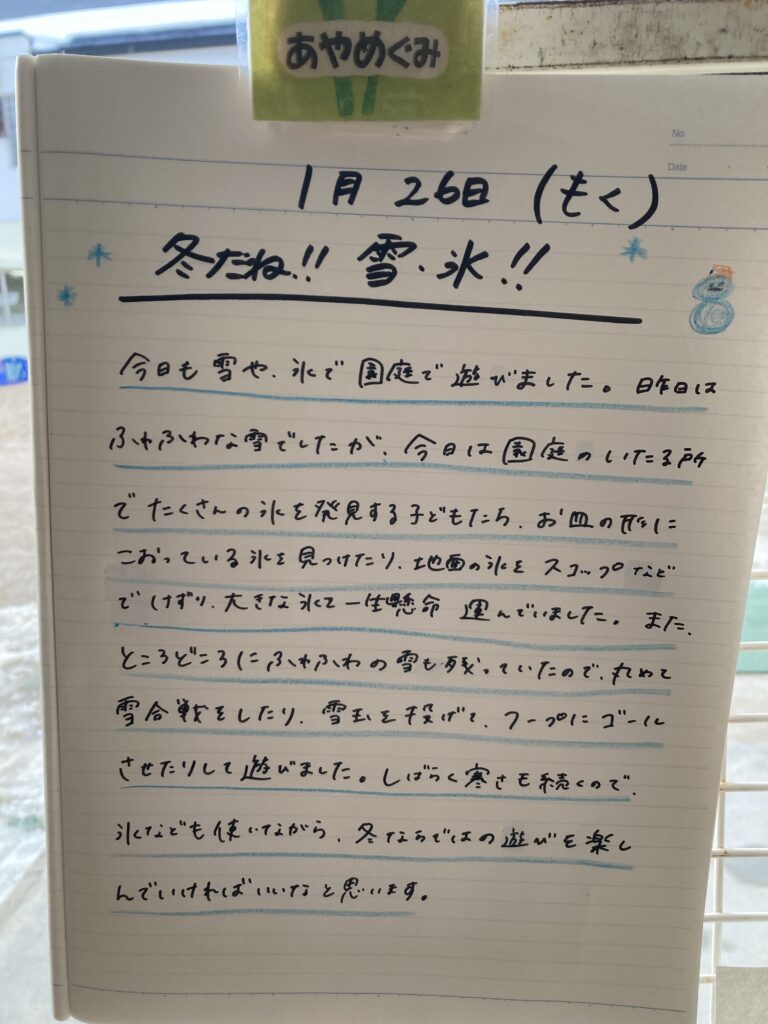 あやめぐみ
No.
Date
1月 26日 (もく)
冬だね!! 雪、氷!!
今日も雪や、氷で園庭で遊びました。昨日は
ふわふわな雪でしたが、今日は園庭のいたる所
でたくさんの氷を発見する子どもたち、お皿の形に
こおっている氷を見つけたり、地面の氷をスコップなど
でけずり、大きな氷を一生懸命 運んでいました。また、
ところどころにふわふわの雪も残っていたので、丸めて
雪合戦をしたり、雪玉を投げて、フープにゴール
させたりして遊びました。しばらく寒さも続くので、
氷なども使いながら、冬ならではの遊びを楽し
んでいければいいなと思います。